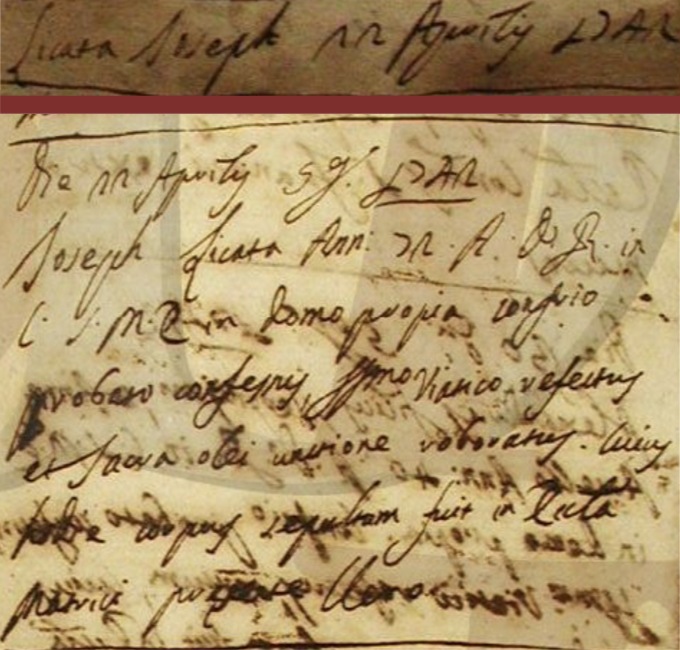 Licata Joseph 22 Aprilis 17AR
Die 22 Aprilis 9 I. 17AR
Joseph Licata Ann: 72. A. D. R. in
C. S. M. E in domo propria confrio
probato confessus, SSmo Viatico refectus
et Sacra olei unctione roboratus. Cuius
corpus sepultum fuit in
matrici Clero